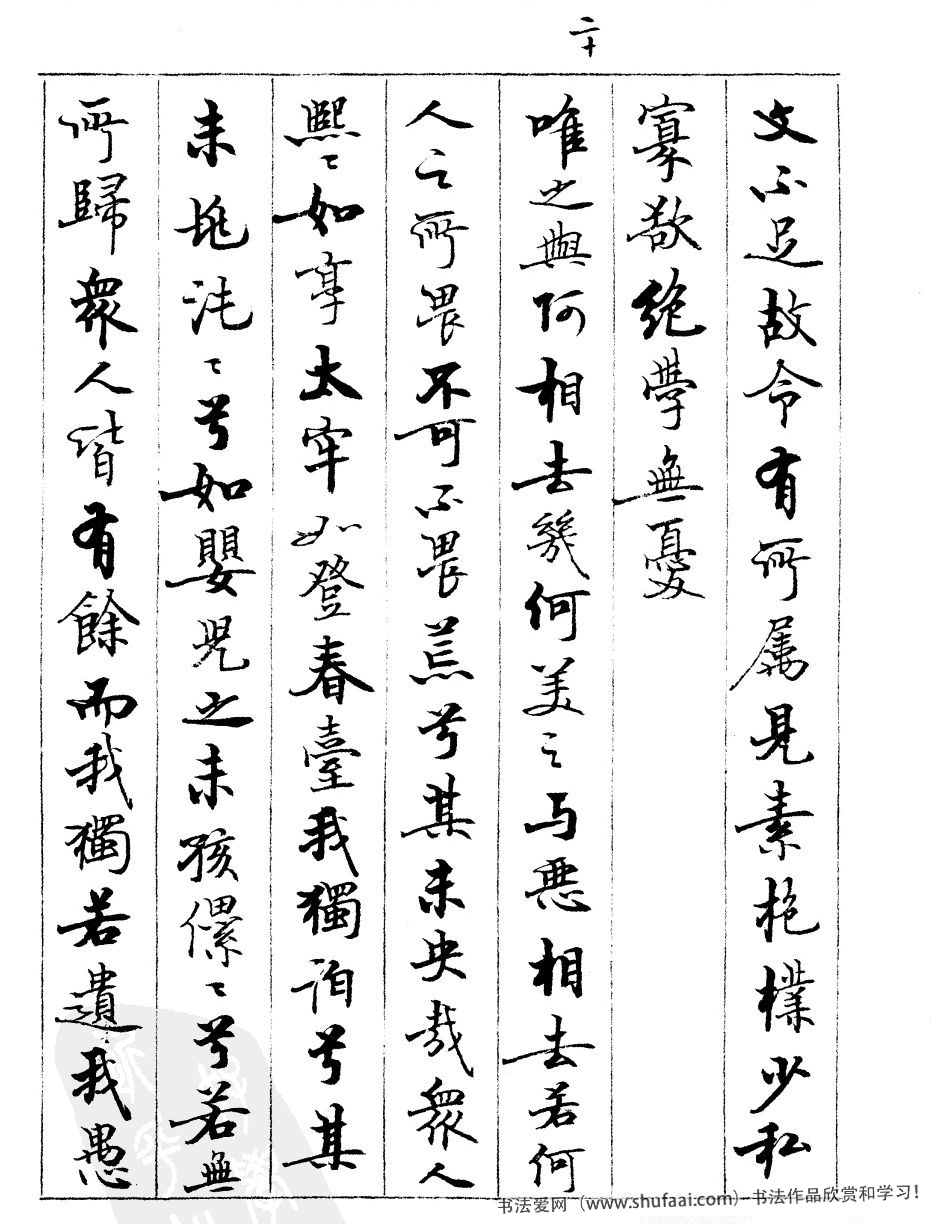 二十
文不足故令有所属見素抱樸少私
寡欲絶學無憂
唯之與阿相去幾何美之与惡相去若何
人之所畏不可不畏荒兮其未央哉衆人
熙〻如享太牢如登春臺我獨泊兮其
未兆沌〻兮如嬰兒之未孩儽〻兮若無
所歸衆人皆有餘而我獨若遺我愚
书法爱网（www.shufaai.com）-书法作品欣赏和学习！